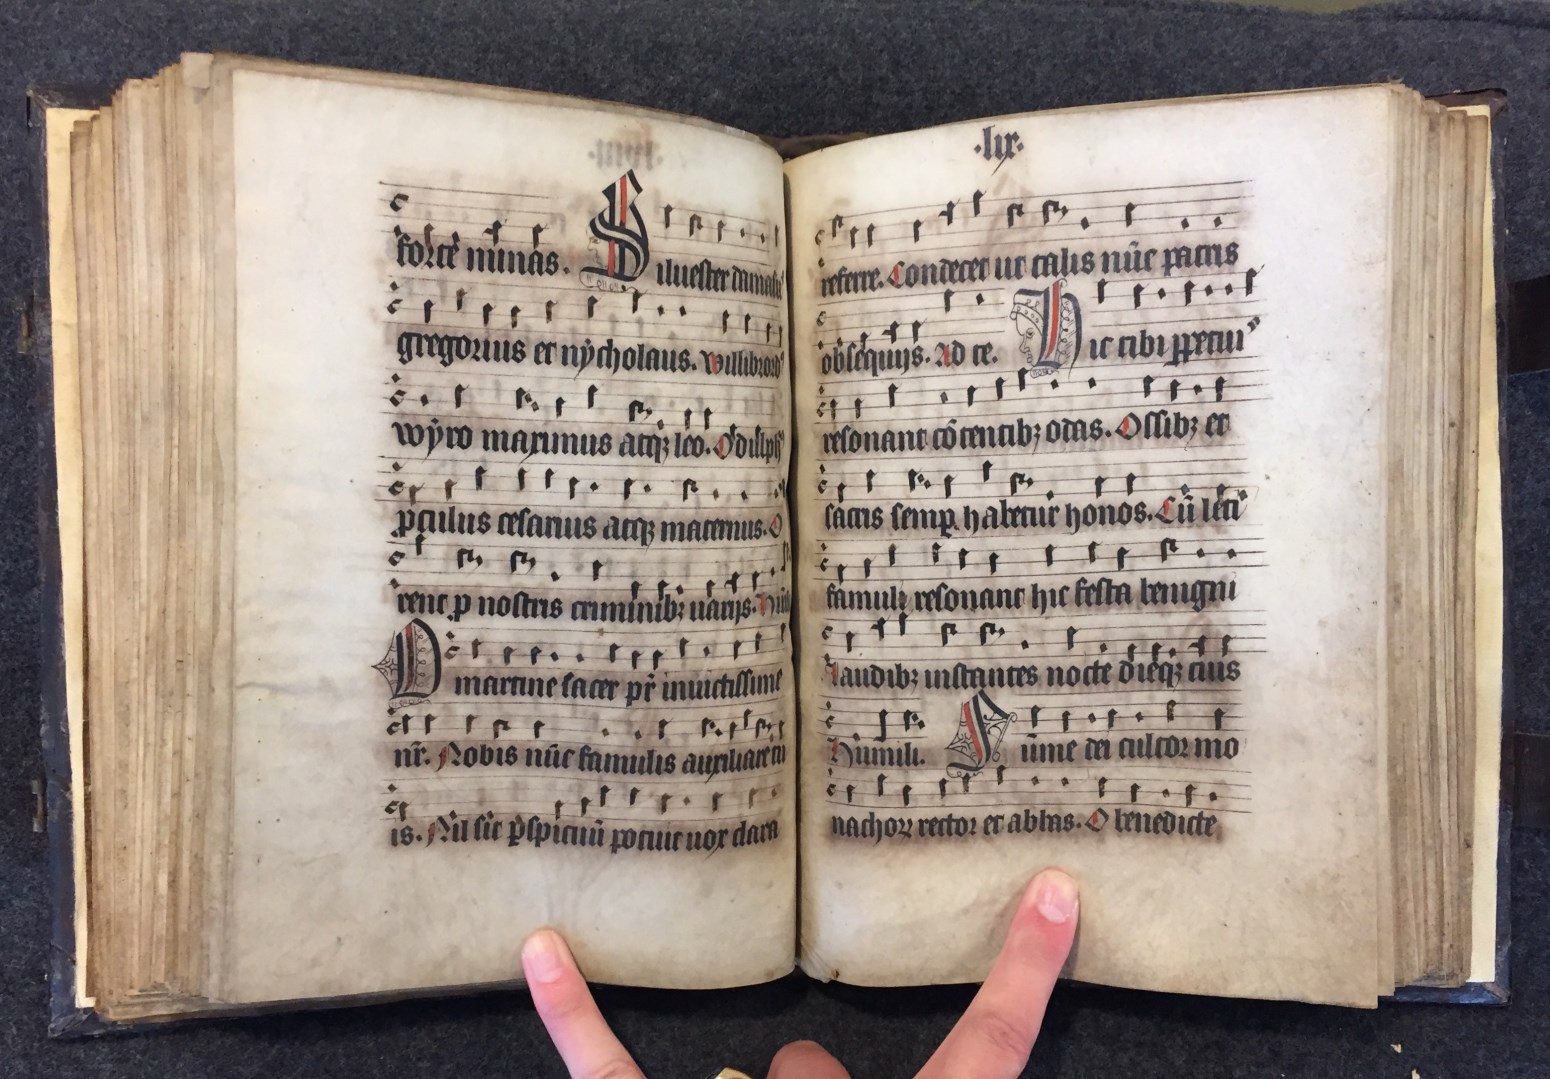 forte minas. Siluester damasus
gregorius et nycholaus. Willibrord9
wyro maximus atq; leo. Odulph9
pculus cesarius atq; maternus. O
rent p nostris criminib; uarijs. Hūc
O martine sacer pr̄ inuictissime
nr̄. Nobis nūc famulis auxiliare tu
is. Nil sic pspicuū potuit uox clara
.lix.
referre. Condecet ut talis nūc patris
obsequijs. Ad te. Hic tibi ppetui9
resonant cōcentib; odas. Ossib; et
sacris semp habetur honos. Cū
famuli resonant hic festa benigni
Laudib; instantes nocte dieq; tuis
Humili. Sūme dei cultor mo
nachoꝝ rector et abbas. O benedicte